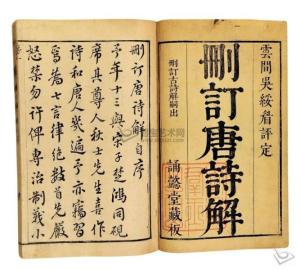 雲間吳綏眉評定
刪訂唐詩解
刪訂古詩解嗣出
誦懿堂藏板
刪訂唐詩解自序
予年十三與宋子楚鴻同硯
席其尊人秋士先生喜作
詩和唐人幾遍予亦竊習
焉為七言律絕數首先嚴
怒禁勿許俾專治制義小